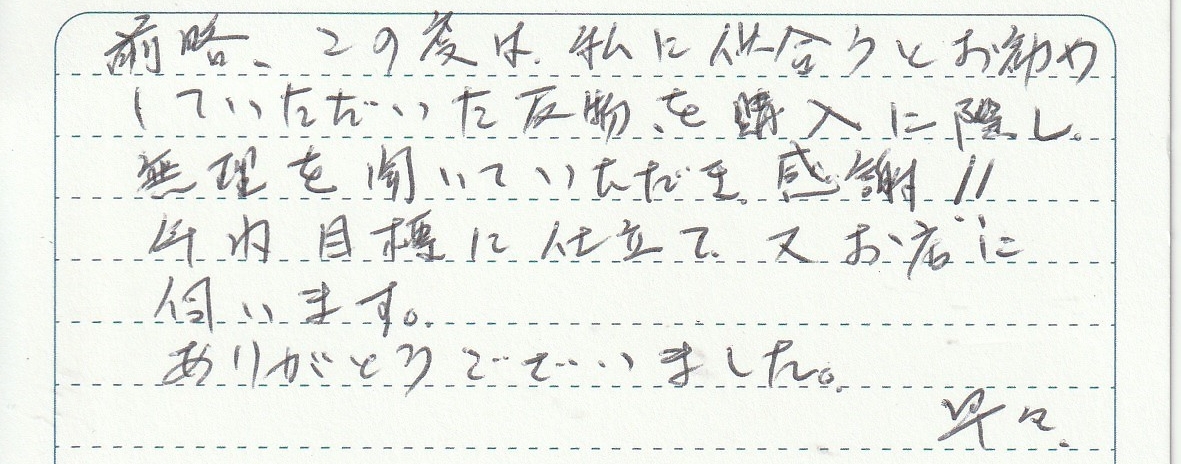 前略、この度は、私に似合うとお勧め
していただいた反物、を購入に際し、
無理を聞いていただき、感謝!!
年内目標に仕立て、又お店に
伺います。
ありがとうございました。
早々、